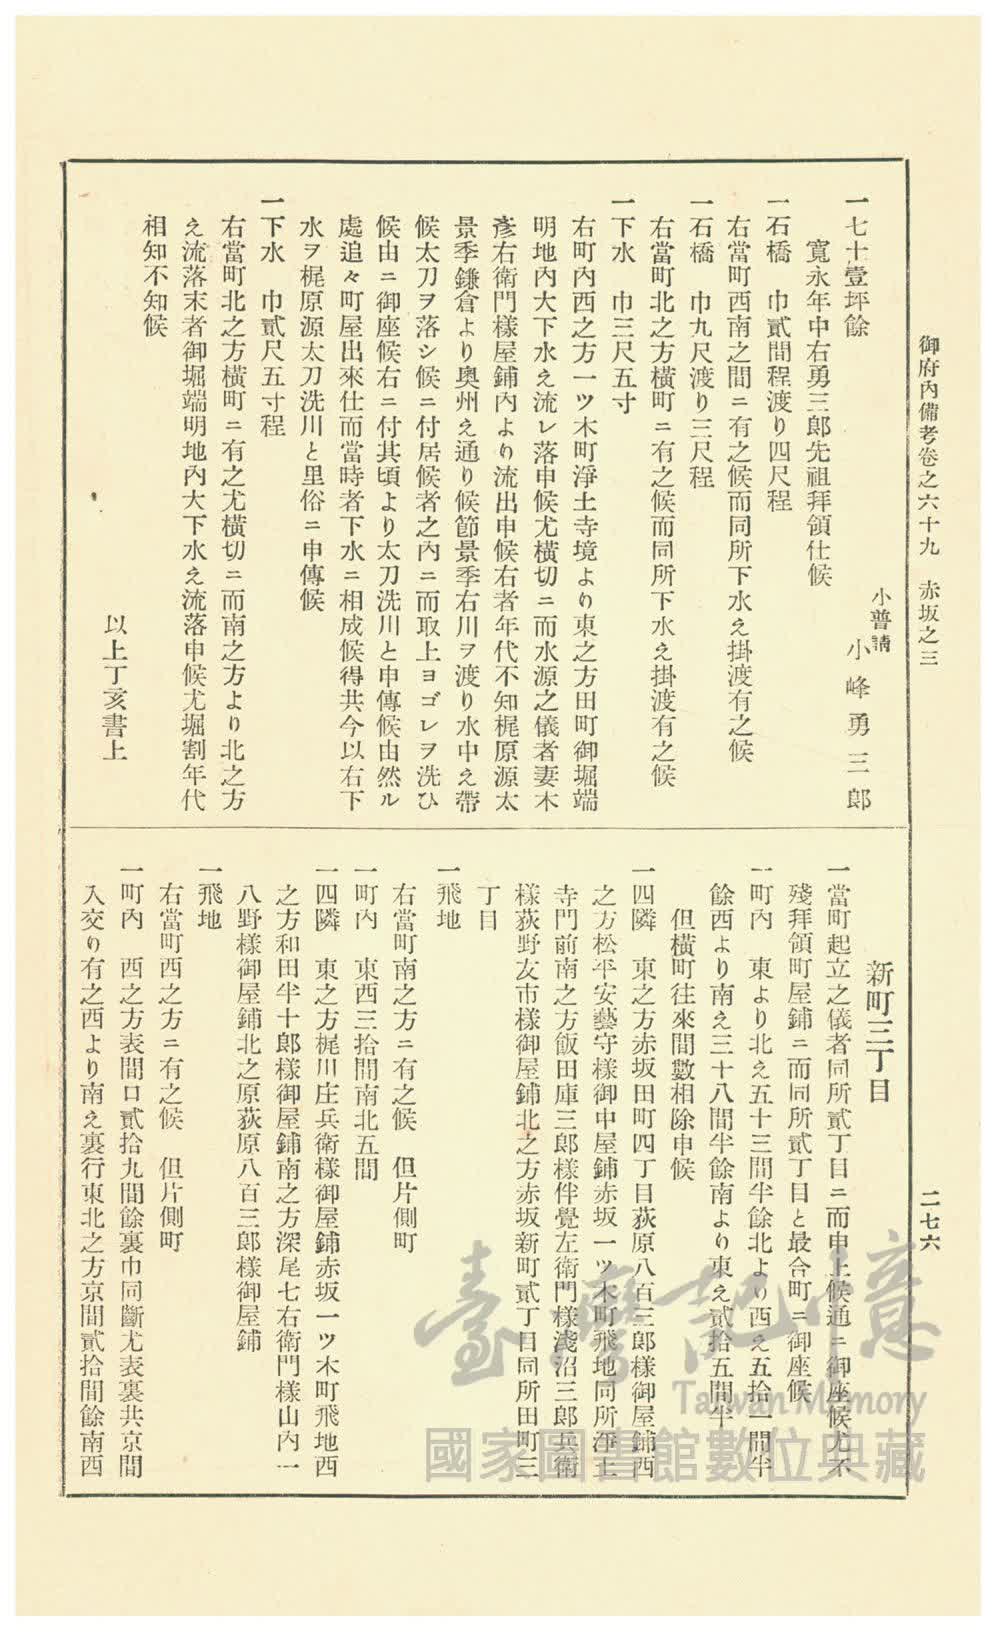 御府內備考卷之六十九　赤坂之三
二七六
一七十壹坪餘
小普請
小峰勇三郎
寬永年中右勇三郎先祖拜領仕候
一石橋　巾貳間程渡り四尺程
右當町西南之間ニ有之候而同所下水え掛渡有之候
一石橋　巾九尺渡り三尺程
右當町北之方橫町ニ有之候而同所下水え掛渡有之候
一下水　巾三尺五寸
右町內西之方一ツ木町淨土寺境より東之方田町御堀端
明地內大下水え流レ落申候尤橫切ニ而水源之儀者妻木
彥右衛門樣屋鋪內より流出申候右者年代不知梶原源太
景季鎌倉より奧州え通り候節景季右川ヲ渡り水中え帶
候太刀ヲ落シ候ニ付居候者之內ニ而取上ヨゴレヲ洗ひ
候由ニ御座候右ニ付其頃より太刀洗川と申傳候由然ル
處追々町屋出來仕而當時者下水ニ相成候得共今以右下
水ヲ梶原源太刀洗川と里俗ニ申傳候
一下水　巾貳尺五寸程
右當町北之方橫町ニ有之尤橫切ニ而南之方より北之方
え流落末者御堀端明地內大下水え流落申候尤堀割年代
相知不知候
以上丁亥書上
新町三丁目
一當町起立之儀者同所貳丁目ニ而申上候通ニ御座候尤不
殘拜領町屋鋪ニ而同所貳丁目と最合町ニ御座候
一町內　東より北え五十三間半餘北より西え五拾一間半
餘西より南え三十八間半餘南より東え貳拾五間半
但橫町往來間數相除申候
一四隣　東之方赤坂田町四丁目荻原八百三郎樣御屋鋪西
之方松平安藝守樣御中屋鋪赤坂一ツ木町飛地同所淨土
寺門前南之方飯田庫三郎樣伴覺左衛門樣淺沼三郎兵衛
樣荻野友市樣御屋鋪北之方赤坂新町貳丁目同所田町三
丁目
一飛地
右當町南之方ニ有之候　但片側町
一町內　東西三拾間南北五間
一四隣　東之方梶川庄兵衛樣御屋鋪赤坂一ツ木町飛地西
之方和田半十郎樣御屋鋪南之方深尾七右衛門樣山內一
八野樣御屋鋪北之原荻原八百三郎樣御屋鋪
一飛地
右當町西之方ニ有之候　但片側町
一町內　西之方表間口貳拾九間餘裏巾同斷尤表裏共京間
入交り有之西より南え裏行東北之方京間貳拾間餘南西
臺灣記憶
Taiwan Memory
國家圖書館數位典藏